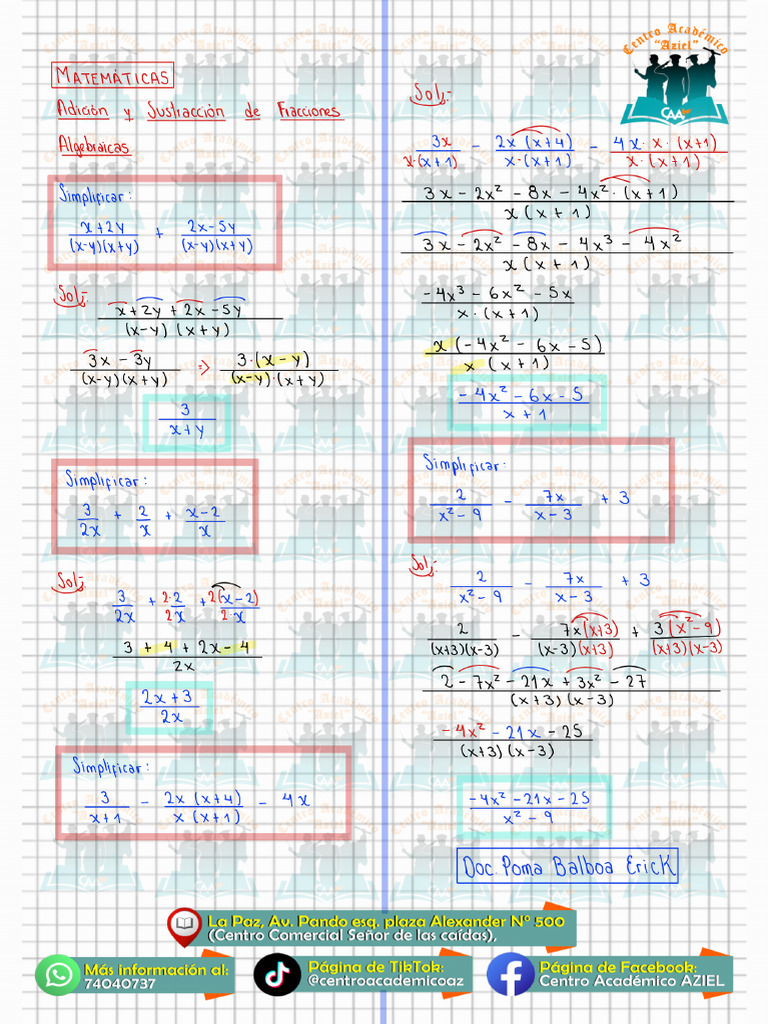 MATEMÁTICAS
Adición y Sustracción de Fracciones
Algebraicas
Simplificar:
x+2y/(x-y)(x+y) + 2x-5y/(x-y)(x+y)
Sol:-
x+2y+2x-5y/(x-y)(x+y)
3x-3y/(x-y)(x+y) => 3·(x-y)/(x-y)·(x+y)
3/x+y
Simplificar:
3/2x + 2/x + x-2/x
Sol:-
3/2x + 2·2/2x + 2(x-2)/2·x
3+4+2x-4/2x
2x+3/2x
Simplificar:
3/x+1 - 2x(x+4)/x(x+1) - 4x
Centro Académico
"Aziel"
CAA
Sol:-
3x/x·(x+1) - 2x(x+4)/x·(x+1) - 4x·x·(x+1)/x·(x+1)
3x-2x²-8x-4x²·(x+1)/x(x+1)
3x-2x²-8x-4x³-4x²/x(x+1)
-4x³-6x²-5x/x·(x+1)
x(-4x²-6x-5)/x(x+1)
-4x²-6x-5/x+1
Simplificar:
2/x²-9 - 7x/x-3 + 3
Sol:-
2/x²-9 - 7x/x-3 + 3
2/(x+3)(x-3) - 7x(x+3)/(x-3)(x+3) + 3(x²-9)/(x+3)(x-3)
2-7x²-21x+3x²-27/(x+3)(x-3)
-4x²-21x-25/(x+3)(x-3)
-4x²-21x-25/x²-9
Doc. Poma Balboa Erick
La Paz, Av. Pando esq. plaza Alexander N° 500
(Centro Comercial Señor de las caídas),
Más información al:
74040737
Página de TikTok:
@centroacademicoaz
Página de Facebook:
Centro Académico AZIEL